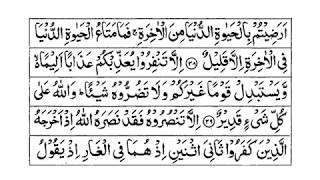 اَرَضِیْتُمْ بِالْحَیٰوةِ الدُّنْیَا مِنَ الْاٰخِرَةِ ۚ فَمَا مَتَاعُ الْحَیٰوةِ الدُّنْیَا
فِی الْاٰخِرَةِ اِلَّا قَلِیْلٌ ﴿۳۸﴾ اِلَّا تَنْفِرُوْا یُعَذِّبْكُمْ عَذَابًا اَلِیْمًا ۙ
وَّیَسْتَبْدِلْ قَوْمًا غَیْرَكُمْ وَلَا تَضُرُّوْهُ شَیْـًٔا ؕ وَاللّٰهُ عَلٰی
كُلِّ شَیْءٍ قَدِیْرٌ ﴿۳۹﴾ اِلَّا تَنْصُرُوْهُ فَقَدْ نَصَرَهُ اللّٰهُ اِذْ اَخْرَجَهُ
الَّذِیْنَ كَفَرُوْا ثَانِیَ اثْنَیْنِ اِذْ هُمَا فِی الْغَارِ اِذْ یَقُوْلُ